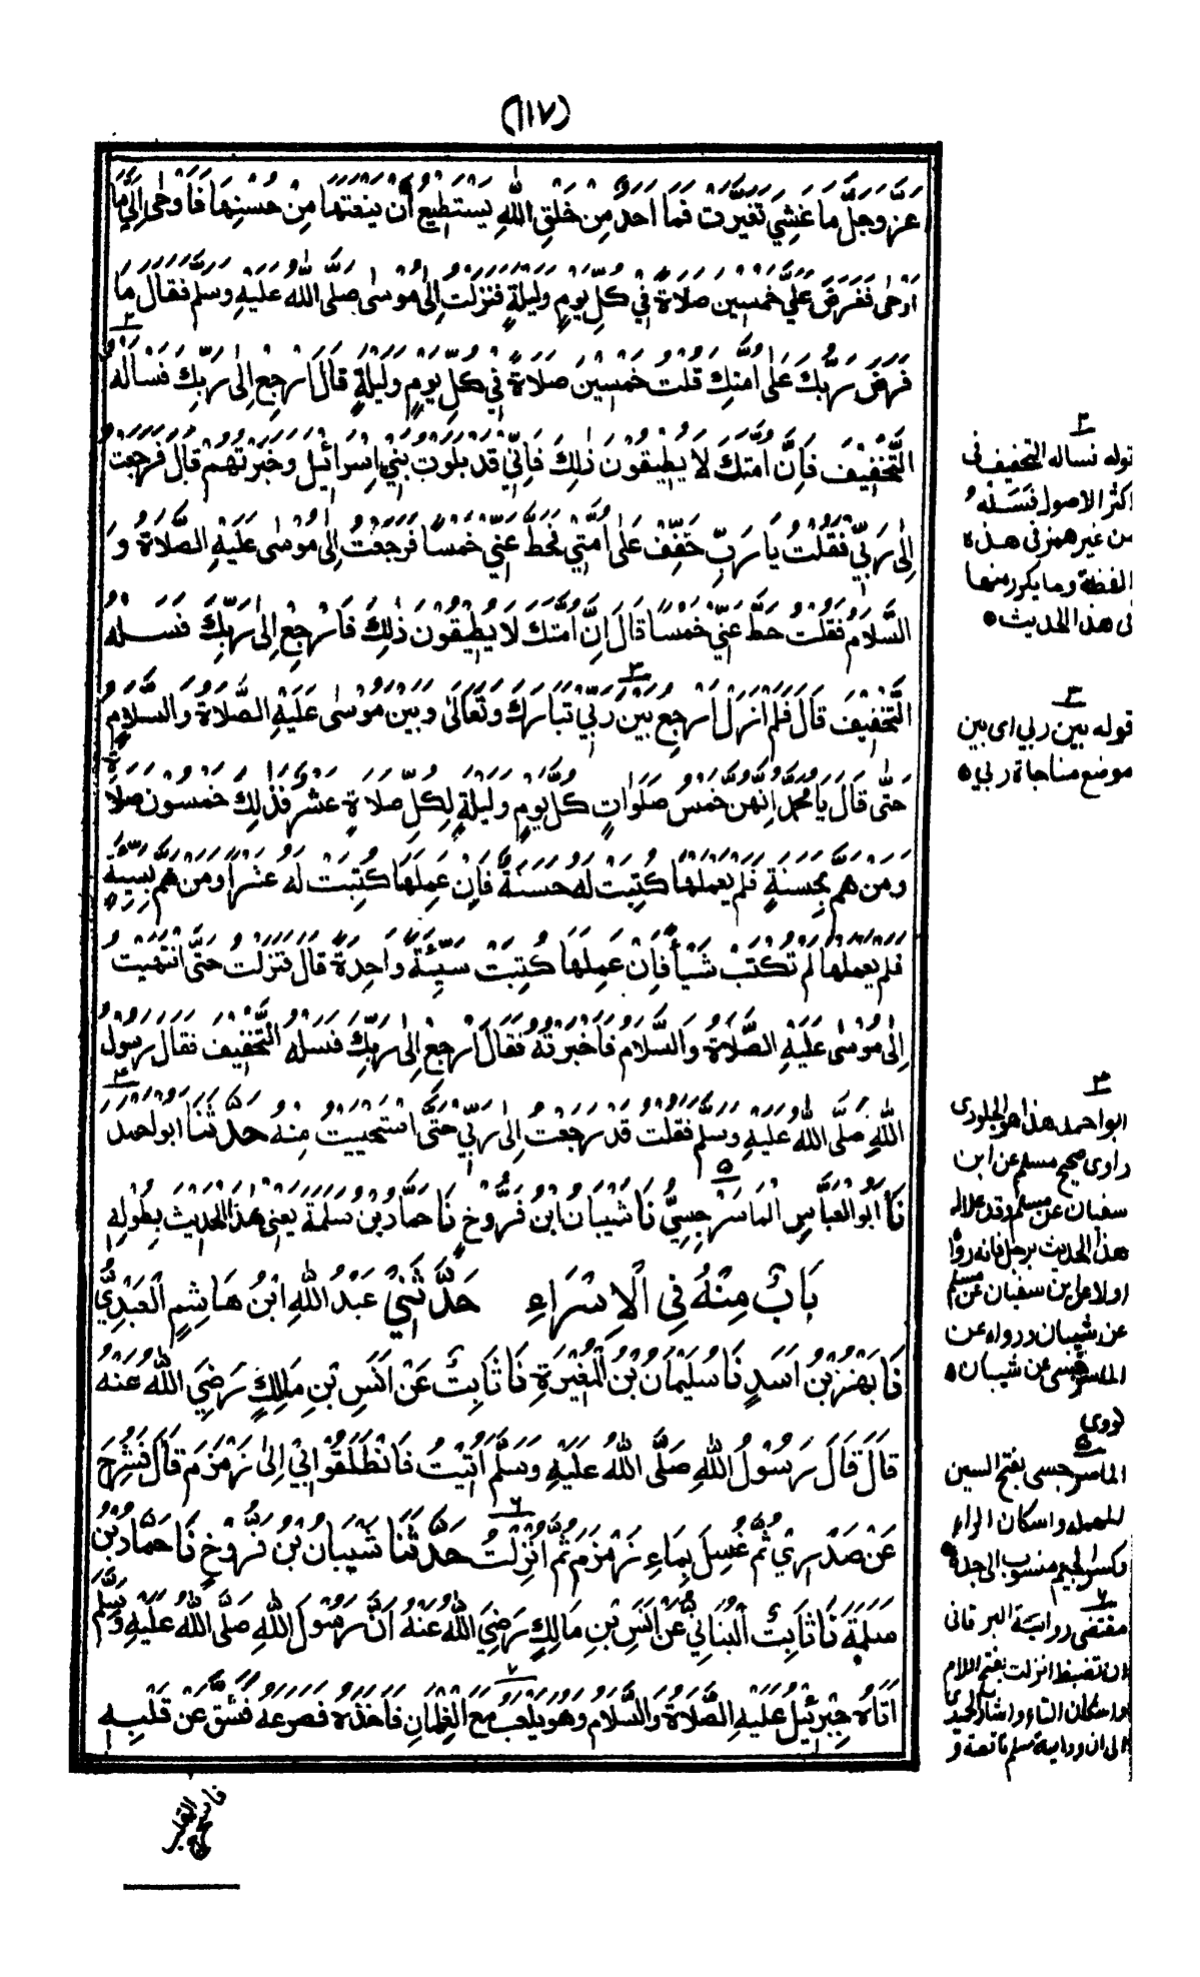 (١١٧)
عَزَّ وَجَلَّ مَا غَشِيَ تَغَيَّرَتْ فَمَا أَحَدٌ مِنْ خَلْقِ اللهِ يَسْتَطِيعُ أَنْ يَنْعَتَهَا مِنْ حُسْنِهَا فَأَوْحَى إِلَيَّ مَا
أَوْحَى فَفَرَضَ عَلَيَّ خَمْسِينَ صَلَاةً فِي كُلِّ يَوْمٍ وَلَيْلَةٍ فَنَزَلْتُ إِلَى مُوسَى صَلَّى اللهُ عَلَيْهِ وَسَلَّمَ فَقَالَ مَا
فَرَضَ رَبُّكَ عَلَى أُمَّتِكَ قُلْتُ خَمْسِينَ صَلَاةً فِي كُلِّ يَوْمٍ وَلَيْلَةٍ قَالَ ارْجِعْ إِلَى رَبِّكَ فَسْأَلْهُ ٢
التَّخْفِيفَ فَإِنَّ أُمَّتَكَ لَا يُطِيقُونَ ذَلِكَ فَإِنِّي قَدْ بَلَوْتُ بَنِي إِسْرَائِيلَ وَخَبَرْتُهُمْ قَالَ فَرَجَعْتُ
إِلَى رَبِّي فَقُلْتُ يَا رَبِّ خَفِّفْ عَلَى أُمَّتِي فَحَطَّ عَنِّي خَمْسًا فَرَجَعْتُ إِلَى مُوسَى عَلَيْهِ الصَّلَاةُ وَ
السَّلَامُ فَقُلْتُ حَطَّ عَنِّي خَمْسًا قَالَ إِنَّ أُمَّتَكَ لَا يُطِيقُونَ ذَلِكَ فَارْجِعْ إِلَى رَبِّكَ فَسَلْهُ
التَّخْفِيفَ قَالَ فَلَمْ أَزَلْ أَرْجِعُ بَيْنَ ٣ رَبِّي تَبَارَكَ وَتَعَالَى وَبَيْنَ مُوسَى عَلَيْهِ الصَّلَاةُ وَالسَّلَامُ
حَتَّى قَالَ يَا مُحَمَّدُ إِنَّهُنَّ خَمْسُ صَلَوَاتٍ كُلَّ يَوْمٍ وَلَيْلَةٍ لِكُلِّ صَلَاةٍ عَشْرٌ فَذَلِكَ خَمْسُونَ صَلَاةً
وَمَنْ هَمَّ بِحَسَنَةٍ فَلَمْ يَعْمَلْهَا كُتِبَتْ لَهُ حَسَنَةً فَإِنْ عَمِلَهَا كُتِبَتْ لَهُ عَشْرًا وَمَنْ هَمَّ بِسَيِّئَةٍ
فَلَمْ يَعْمَلْهَا لَمْ تُكْتَبْ شَيْئًا فَإِنْ عَمِلَهَا كُتِبَتْ سَيِّئَةً وَاحِدَةً قَالَ فَنَزَلْتُ حَتَّى انْتَهَيْتُ
إِلَى مُوسَى عَلَيْهِ الصَّلَاةُ وَالسَّلَامُ فَأَخْبَرْتُهُ فَقَالَ ارْجِعْ إِلَى رَبِّكَ فَسَلْهُ التَّخْفِيفَ فَقَالَ رَسُولُ
اللهِ صَلَّى اللهُ عَلَيْهِ وَسَلَّمَ فَقُلْتُ قَدْ رَجَعْتُ إِلَى رَبِّي حَتَّى اسْتَحْيَيْتُ مِنْهُ حَدَّثَنَا أَبُو أَحْمَدَ ٤
نَا أَبُو الْعَبَّاسِ الْمَاسَرْجِسِيُّ ٥ نَا شَيْبَانُ ابْنُ فَرُّوخٍ نَا حَمَّادُ بْنُ سَلَمَةَ يَعْنِي هَذَا الْحَدِيثَ بِطُولِهِ
بَابٌ مِنْهُ فِي الْإِسْرَاءِ حَدَّثَنِي عَبْدُ اللهِ ابْنُ هَاشِمٍ الْعَبْدِيُّ
نَا بَهْزُ بْنُ أَسَدٍ نَا سُلَيْمَانُ بْنُ الْمُغِيرَةِ نَا ثَابِتٌ عَنْ أَنَسِ بْنِ مَالِكٍ رَضِيَ اللهُ عَنْهُ
قَالَ قَالَ رَسُولُ اللهِ صَلَّى اللهُ عَلَيْهِ وَسَلَّمَ أُتِيتُ فَانْطَلَقُوا بِي إِلَى زَمْزَمَ قَالَ فَشُرِحَ
عَنْ صَدْرِي ثُمَّ غُسِلَ بِمَاءِ زَمْزَمَ ثُمَّ أُنْزِلْتُ ٦ حَدَّثَنَا شَيْبَانُ بْنُ فَرُّوخٍ نَا حَمَّادُ بْنُ
سَلَمَةَ نَا ثَابِتٌ الْبُنَانِيُّ عَنْ أَنَسِ بْنِ مَالِكٍ رَضِيَ اللهُ عَنْهُ أَنَّ رَسُولَ اللهِ صَلَّى اللهُ عَلَيْهِ وَسَلَّمَ
أَتَاهُ جِبْرَئِيلُ عَلَيْهِ الصَّلَاةُ وَالسَّلَامُ وَهُوَ يَلْعَبُ ٧ مَعَ الْغِلْمَانِ فَأَخَذَهُ فَصَرَعَهُ فَشَقَّ عَنْ قَلْبِهِ
٢
قوله نساله التخفيف فى
اكثر الاصول فَسَلْهُ
من غير همز فى هذه
اللفظة وما يكرر منها
فى هذا الحديث ٥
٣
قوله بين ربي اى بين
موضع مناجاة ربي ٥
٤
ابو احمد هذا هو الجلودى
راوى صحيح مسلم عن ابن
سفيان عن مسلم وقد علا له
هذا الحديث برجل فانه رواه
اولا عن ابن سفيان عن مسلم
عن شيبان ورواه عن
الماسرجسى عن شيبان ٥
نووى
٥
الماسرجسى بفتح السين
المهمله واسكان الراء
وكسر الجيم منسوب الى جده
٦
مقتضى رواية البرقانى
ان تضبط انزلت بفتح اللام
واسكان التاء واشار الحميدى
الى ان رواية مسلم ناقصة و